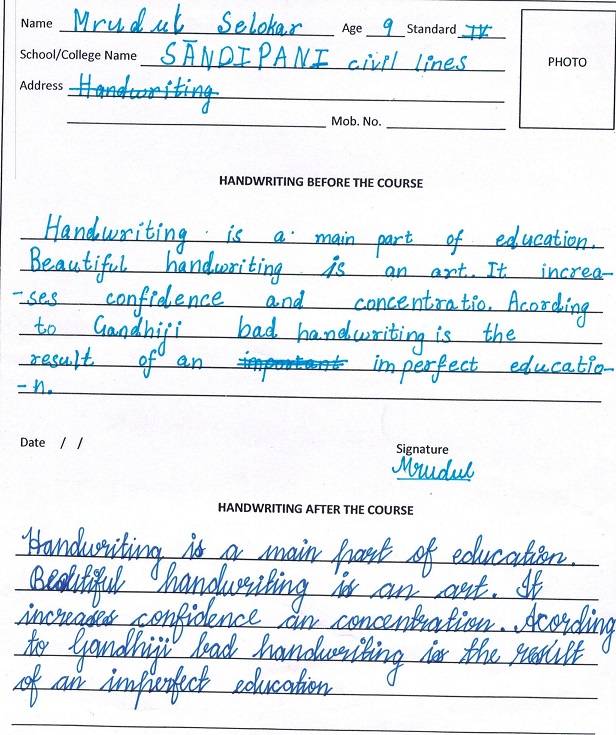 Name Mrudul Selokar Age 9 Standard IV
School/College Name SĀNDIPANI civil lines
PHOTO
Address Handwriting
Mob. No.
HANDWRITING BEFORE THE COURSE
Handwriting is a main part of education.
Beautiful handwriting is an art. It increa-
-ses confidence and concentratio. Acording
to Gandhiji bad handwriting is the
result of an important imperfect educatio-
-n.
Date / /
Signature
Mrudul
HANDWRITING AFTER THE COURSE
Handwriting is a main part of education.
Beautiful handwriting is an art. It
increases confidence an concentration. Acording
to Gandhiji bad handwriting is the result
of an imperfect education